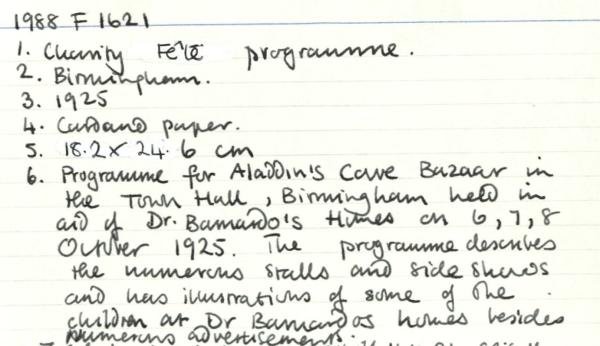 1988 F 1621
1. Charity Fête programme.
2. Birmingham.
3. 1925
4. Card and paper.
5. 18.2 x 24.6 cm
6. Programme for Aladdin's Cave Bazaar in
the Town Hall, Birmingham held in
aid of Dr. Barnardo's Homes on 6, 7, 8
October 1925. The programme describes
the numerous stalls and side shows
and has illustrations of some of the
children at Dr Barnardos homes besides
numerous advertisements.